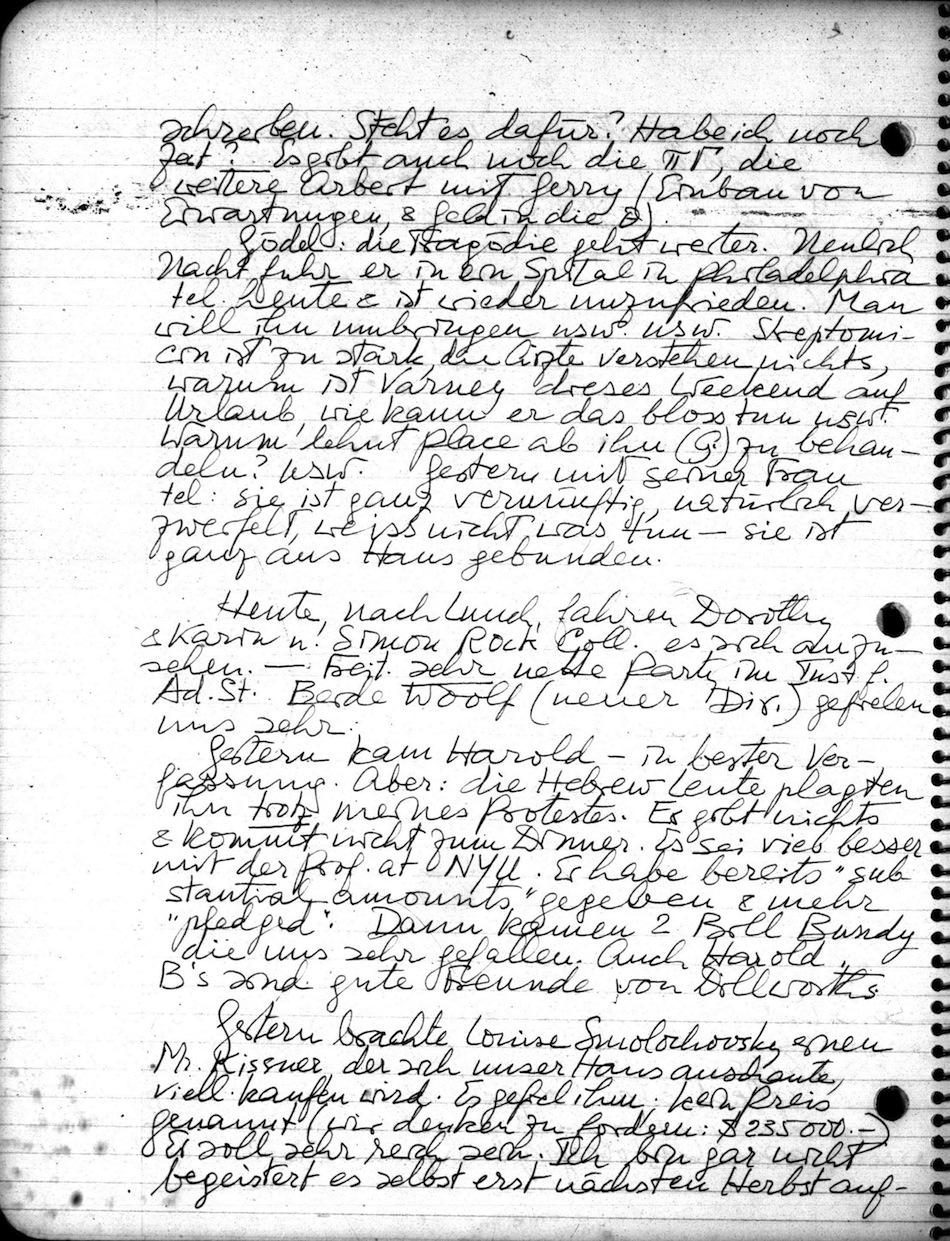 schreiben. Steht es dafür? Habe ich noch
Zeit? Es gibt auch noch die ΠΓ, die
weitere Arbeit mit Gerry (Einbau von
Erwartungen, & Geld in die &).
Gödel: die Tragödie geht weiter. Neulich
Nacht fuhr er in ein Spital in Philadelphia
tel. heute & ist wieder unzufrieden. Man
will ihn umbringen usw. usw. Streptomi-
cin ist zu stark, die Ärzte verstehen nichts,
warum ist Varney dieses Weekend auf
Urlaub, wie kann er das bloss tun usw.
Warum lehnt Place ab ihn (G.) zu behan-
deln? usw. Gestern mit seiner Frau
tel: sie ist ganz vernünftig, natürlich ver-
zweifelt, weiss nicht was tun – sie ist
ganz ans Haus gebunden.
Heute, nach Lunch, fahren Dorothy
& Karin n. Simon Rock Coll. es sich anzu-
sehen. — Freit. sehr nette Party im Inst f.
Ad. St. Beide Woolf (neuer Dir.) gefielen
uns sehr.
Gestern kam Harold – in bester Ver-
fassung. Aber: die Hebrew Leute plagten
ihn trotz meines Protestes. Er gibt nichts
& kommt nicht zum Dinner. Es sei viel besser
mit der Prof. at NYU. Er habe bereits "sub
stantial amounts" gegeben & mehr
"pledged". Dann kamen 2 Bill Bundy
die uns sehr gefallen. Auch Harold.
B's sind gute Freunde von Dillworths
Gestern brachte Louise Smolochovsky einen
Mr. Kissner, der sich unser Haus anschaute,
viell. kaufen wird. Es gefiel ihm; kein Preis
genannt (wir denken zu fordern: $ 235 000.–)
Er soll sehr reich sein. Ich bin gar nicht
begeistert es selbst erst nächsten Herbst auf-